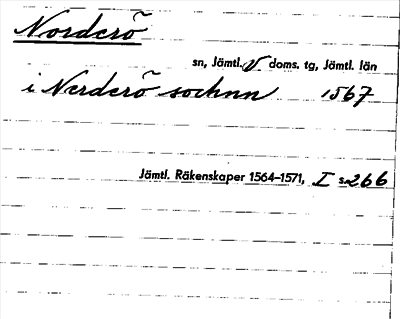 Norderö
sn, Jämtl. V. doms. tg, Jämtl. län
i Nerderö sochnn 1567
Jämtl. Räkenskaper 1564–1571, I s. 266